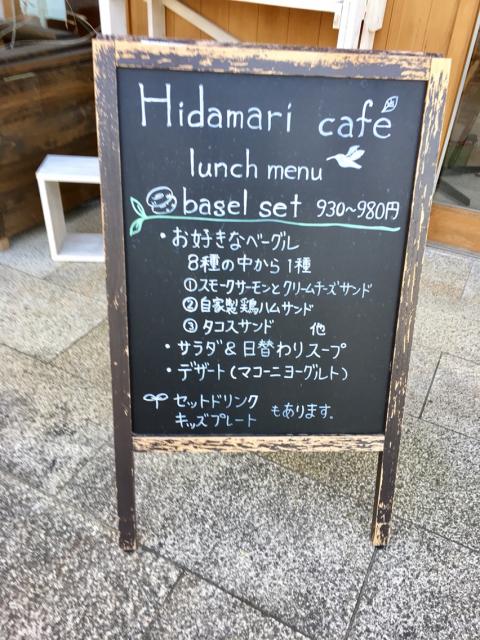 Hidamari café
lunch menu
basel set 930〜980円
・お好きなベーグル
8種の中から1種
①スモークサーモンとクリームチーズサンド
②自家製鶏ハムサンド
③タコスサンド 他
・サラダ&日替わりスープ
・デザート(マコーニヨーグルト)
セットドリンク
キッズプレート もあります。